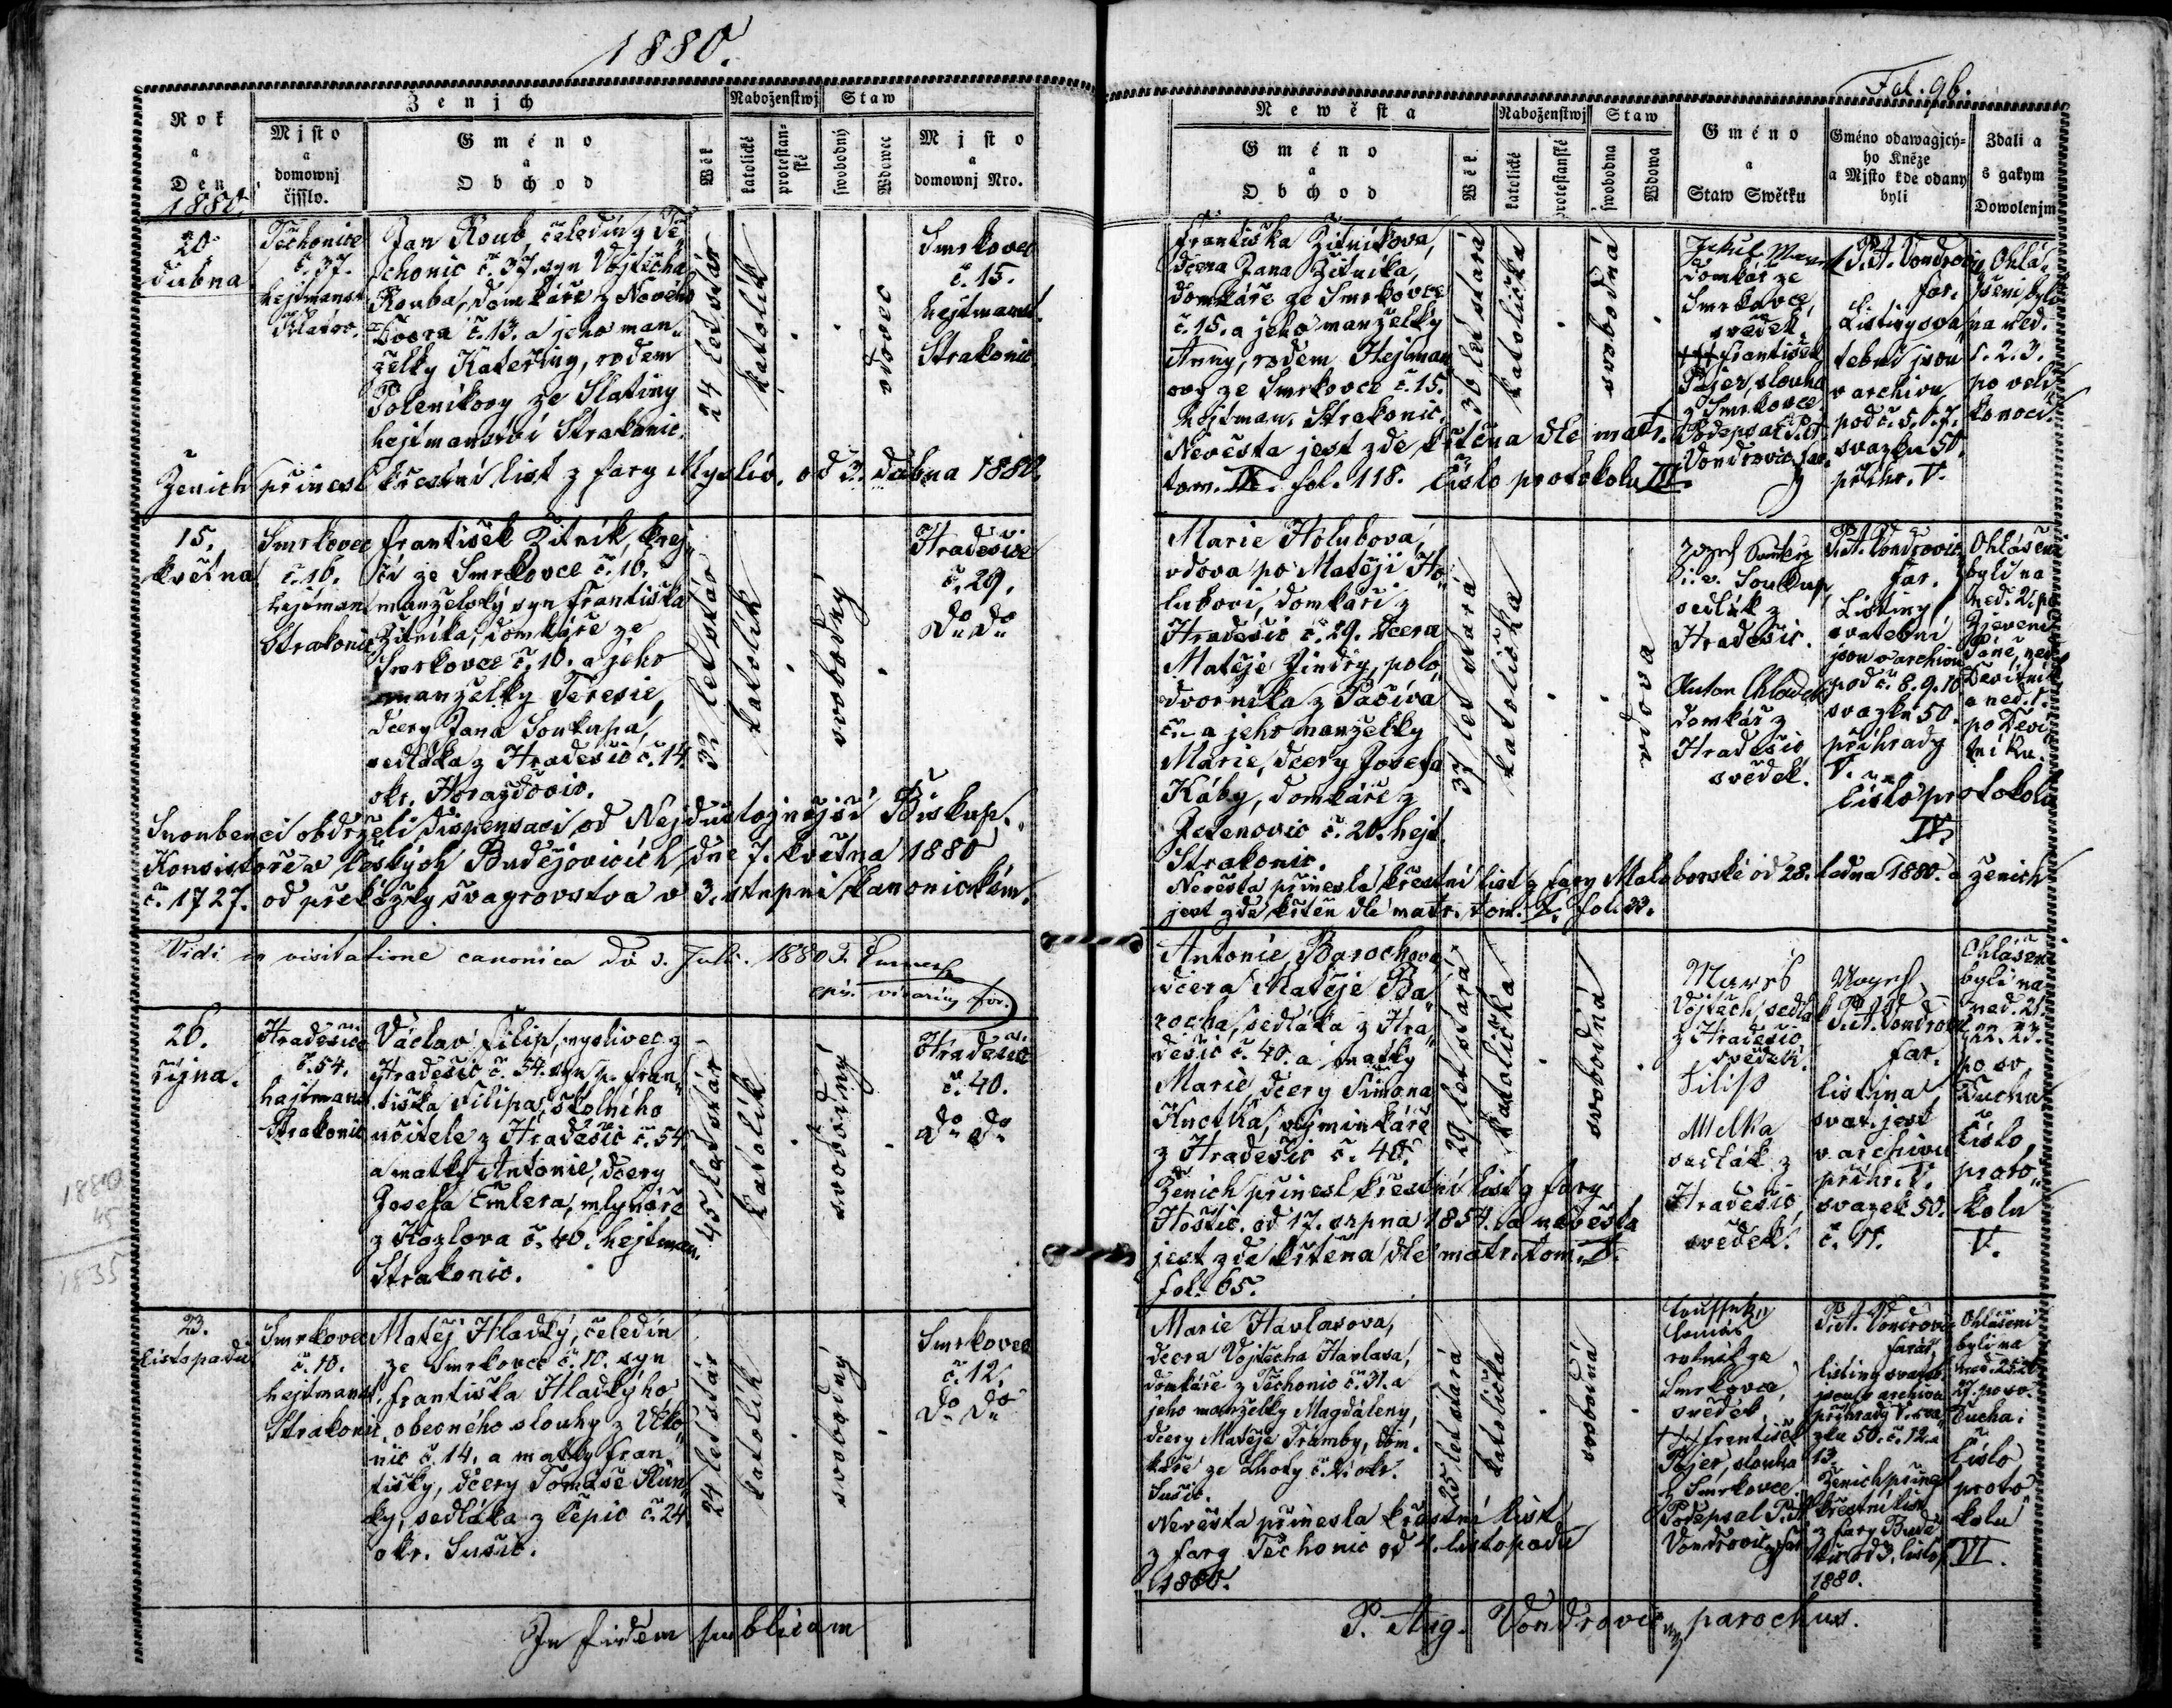 1880.
Rok
a
Den
1880.
Ženich
Mjsto
a
domownj
čjslo.
Gméno
a
Obchod
Wěk
Náboženstwj
katolické
protestan-
ské
Staw
swobodný
Wdowec
Mjsto
a
domownj Nro.
20.
dubna
Těchonice
č. 37.
hejtmanst.
Jan Roub, čeledín z Tě-
chonic č. 37, syn Vojtěcha
Rouba, domkáře z Nového
Dvora č. 13. a jeho man-
želky Kateřiny, rodem
Poleníkovy ze Slatiny
hejtmanství Strakonic.
24 let stár
katolík
vdovec
Smrkovec
č. 15.
hejtmanst.
Strakonic
Ženich přinesl křestní list z fary Myslív. od 3. dubna 1880.
15.
května
Smrkovec
č. 16.
hejtman.
Strakonic
František Žitník, krej-
čí ze Smrkovce č. 16.
manželský syn Františka
Žitníka, domkáře ze
Smrkovce č. 16. a jeho
manželky Teresie,
dcery Jana Soukupa,
sedláka z Hradešic č. 14.
okr. Horažďovic.
32 let stár
katolík
svobodný
Hradešice
č. 29.
do do
Snoubenci obdrželi dispensaci od Nejdůstojnější Biskup.
Konsistoře v Českých Budějovicích dne 7. května 1880
č. 1727. od překážky švagrovstva v 3. stupni kanonickém.
Vidi in visitatione canonica
1880
26.
října.
Hradešice
č. 54.
hejtmanst.
Strakonic
Václav Filip, myslivec z
Hradešic č. 54. syn p. Fran-
tiška Filipa, školního
učitele z Hradešic č. 54
a matky Antonie, dcery
Josefa Emlera, mlynáře
z Kozlova č. 40. hejtman.
Strakonic.
45 let stár
katolík
svobodný
Hradešice
č. 40.
do do
1880
45
1835
23.
listopadu
Smrkovec
č. 10.
hejtmanst.
Strakonic
Matěj Hladký, čeledín
ze Smrkovce č. 10. syn
Františka Hladkýho
obecného slouhy z
č. 14. a matky Fran-
tišky, dcery Tomáše
sedláka z Čepic č. 24.
okr. Sušic.
24 let stár
katolík
svobodný
Smrkovec
č. 12.
do do
In fidem publicam
Fol. 96.
Newěsta
Gméno
a
Obchod
Wěk
Náboženstwj
katolické
protestanské
Staw
swobodna
Wdowa
Gméno
a
Staw Swětku
Gméno odawagjcý-
ho Kněze
a Mjsto kde odany
byli
Zdali a
s gakym
Dowolenjm
Františka Žitníkova,
dcera Jana Žitníka,
domkáře ze Smrkovce
č. 15. a jeho manželky
Anny, rodem Hejman
ovy ze Smrkovce č. 15.
hejtman. Strakonic.
Nevěsta jest zde křtěna dle matr.
tom. IX. fol. 118. Číslo protokolu III.
30 let stará
katolička
svobodná
domkář ze
Smrkovce,
svědek.
+++ František
Pajer, slouha
z Smrkovce
Podepsal P. A.
Vondrovic, far.
P. A. Vondrovic
far.
Listiny sva
tební jsou
v archivu
pod č. 5. 6. 7.
svazku 50.
přihr. V.
Ohlá-
šeni byli
na ned.
1. 2. 3.
po veli-
konoci.
Marie Holubova,
vdova po Matěji Ho-
lubovi, domkáři z
Hradešic č. 29. dcera
Matěje Jindry, polo
dvorníka z Pačiva
č. - a jeho manželky
Marie, dcery Josefa
Káby, domkáře z
Jetenovic č. 20. hejt.
Strakonic.
37 let stará
katolička
vdova
Soukup,
sedlák z
Hradešic.
Anton
domkář z
Hradešic
svědek.
P. A. Vondrovic
far.
Listiny
svatební
jsou v archivu
pod č. 8. 9. 10
svazku 50.
přihrady
V.
Ohlášeni
byli na
ned. 2. po
Zjevení
Páně, ned.
Devítník
a ned. 1.
po Deví-
tníku.
Číslo protokolu
IV.
Nevěsta přinesla křestní list z fary Maloborské od 28. ledna 1880. a ženich
jest zde křtěn dle matr. tom. fol. 33.
Antonie Barochova
dcera Matěje Ba-
rocha, sedláka z Hra-
dešic č. 40. a matky
Marie, dcery Šimona
Knotka, výminkáře
z Hradešic č. 40.
29 let stará
katolička
svobodná
Ženich přinesl křestní list z fary
Hoštic. od 17. srpna 1854. a nevěsta
jest zde křtěna dle matr. tom. V.
fol. 65.
Mareš
Vojtěch, sedlák
z Hradešic
svědek.
Filip
Melka
sedlák z
Hradešic,
svědek.
P. A. Vondrovic
far.
listina
svat. jest
v archivu
přihr. V.
svazek 50.
č. 11.
Ohlášeni
byli na
ned. 21.
22. 23.
po sv.
Duchu
Číslo
proto-
kolu
V.
Marie Havlasova,
dcera Vojtěcha Havlasa,
domkáře z Těchonic č. 31. a
jeho manželky Magdaleny,
dcery Matěje Tramby, dom-
káře ze Lhoty okr.
Sušic.
25 let stará
katolička
svobodná
Nevěsta přinesla křestní list
z fary Těchonic od 4. listopadu
1880.
Tomáš
rolník ze
Smrkovce,
svědek
+++ František
Pajer, slouha
z Smrkovce
Podepsal P. A.
Vondrovic, far.
P. A. Vondrovic
farář.
listiny svateb.
jsou v archivu
přihrady V. sva-
zku 50. č. 12. a
13.
Ženich přinesl
křestní list
z fary
1880.
Ohlášeni
byli na
ned. 25. 26.
27. po sv.
Duchu.
Číslo
proto-
kolu
VI.
P. Aug. Vondrovic, parochus.